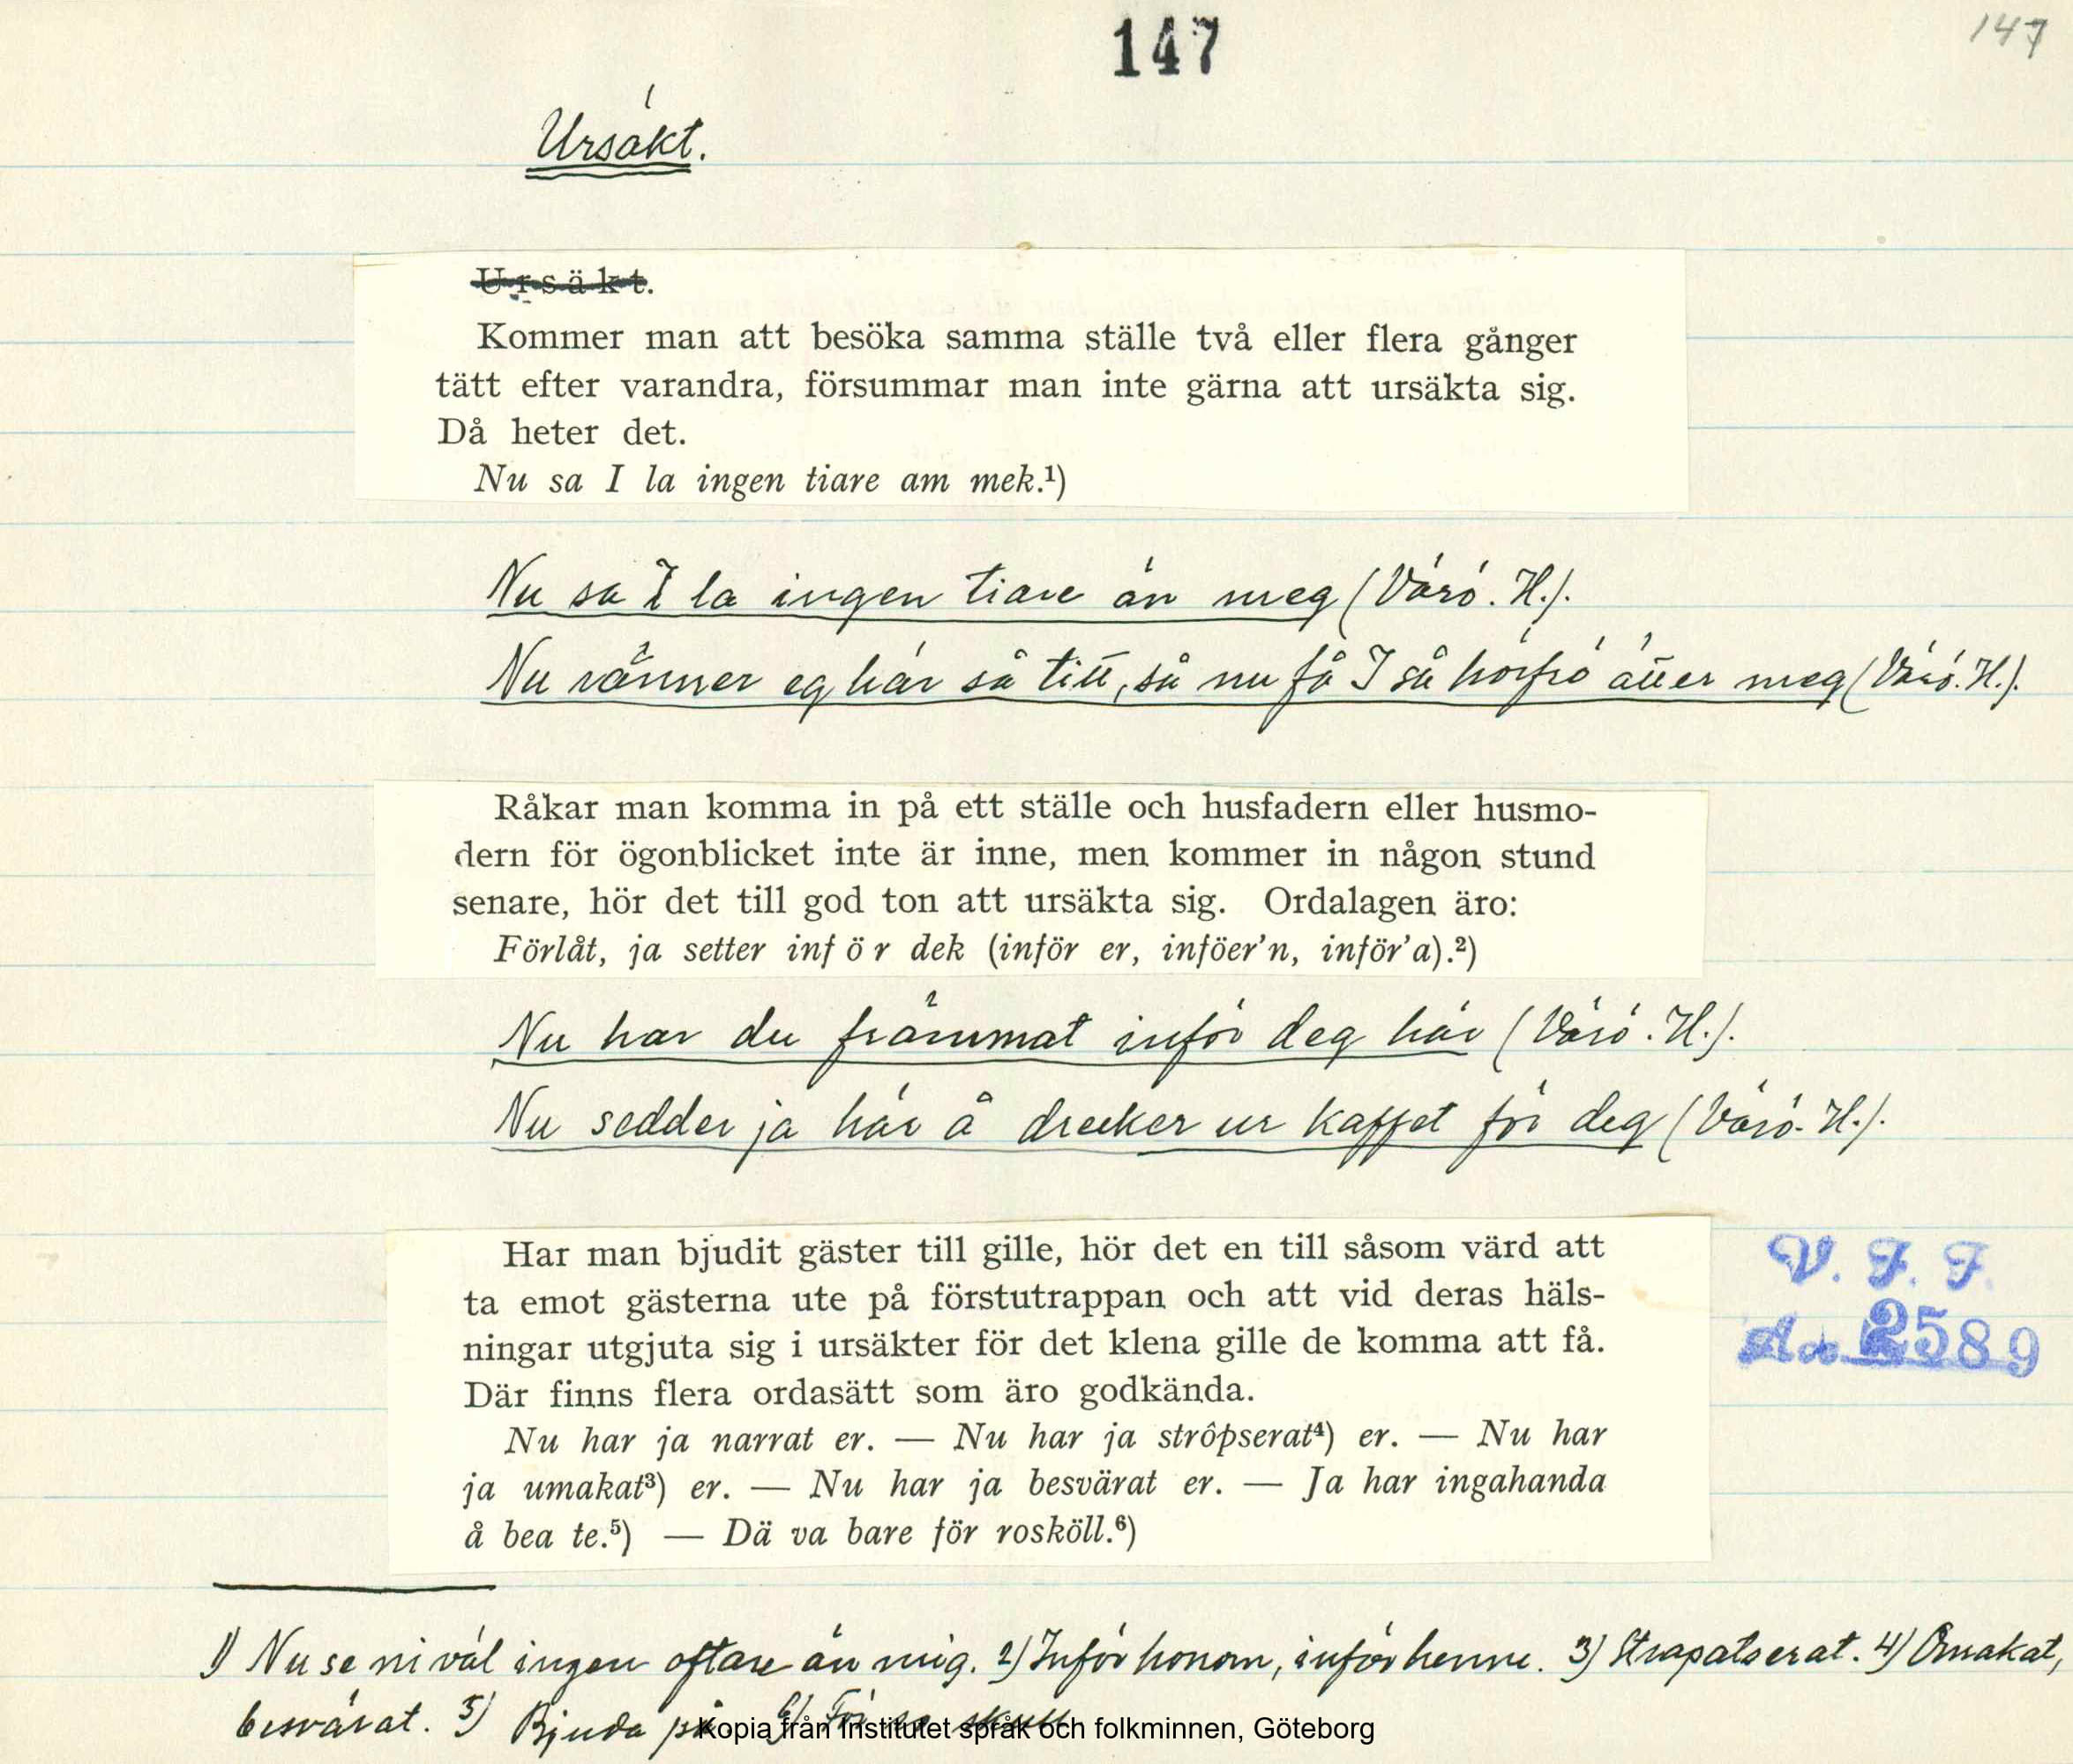 147
147
Ursäkt.
Ursäkt.
Kommer man att besöka samma ställe två eller flera gånger
tätt efter varandra, försummar man inte gärna att ursäkta sig.
Då heter det.
Nu sa I la ingen tiare am mek.¹)
Nu sa I la ingen tiare än meg (Värö. H.).
Nu ränner eg här så titt, så nu få I så hörfrö åtter meg (Värö. H.).
Råkar man komma in på ett ställe och husfadern eller husmo-
dern för ögonblicket inte är inne, men kommer in någon stund
senare, hör det till god ton att ursäkta sig. Ordalagen äro:
Förlåt, ja setter inför dek (inför er, inföer'n, inför'a).²)
Nu har du främmat inför deg här (Värö. H.).
Nu sedder ja här å drecker ur kaffet för deg (Värö. H.).
Har man bjudit gäster till gille, hör det en till såsom värd att
ta emot gästerna ute på förstutrappan och att vid deras häls-
ningar utgjuta sig i ursäkter för det klena gille de komma att få.
Där finns flera ordasätt som äro godkända.
Nu har ja narrat er. — Nu har ja strôpserat⁴) er. — Nu har
ja umakat³) er. — Nu har ja besvärat er. — Ja har ingahanda
å bea te.⁵) — Dä va bare för rosköll.⁶)
V. F. F.
2589
1) Nu se ni väl ingen oftare än mig. 2) Inför honom, inför henne. 3) Strapatserat. 4) Omakat,
besvärat. 5) Bjuda på. 6) För ro skull
Kopia från Institutet språk och folkminnen, Göteborg